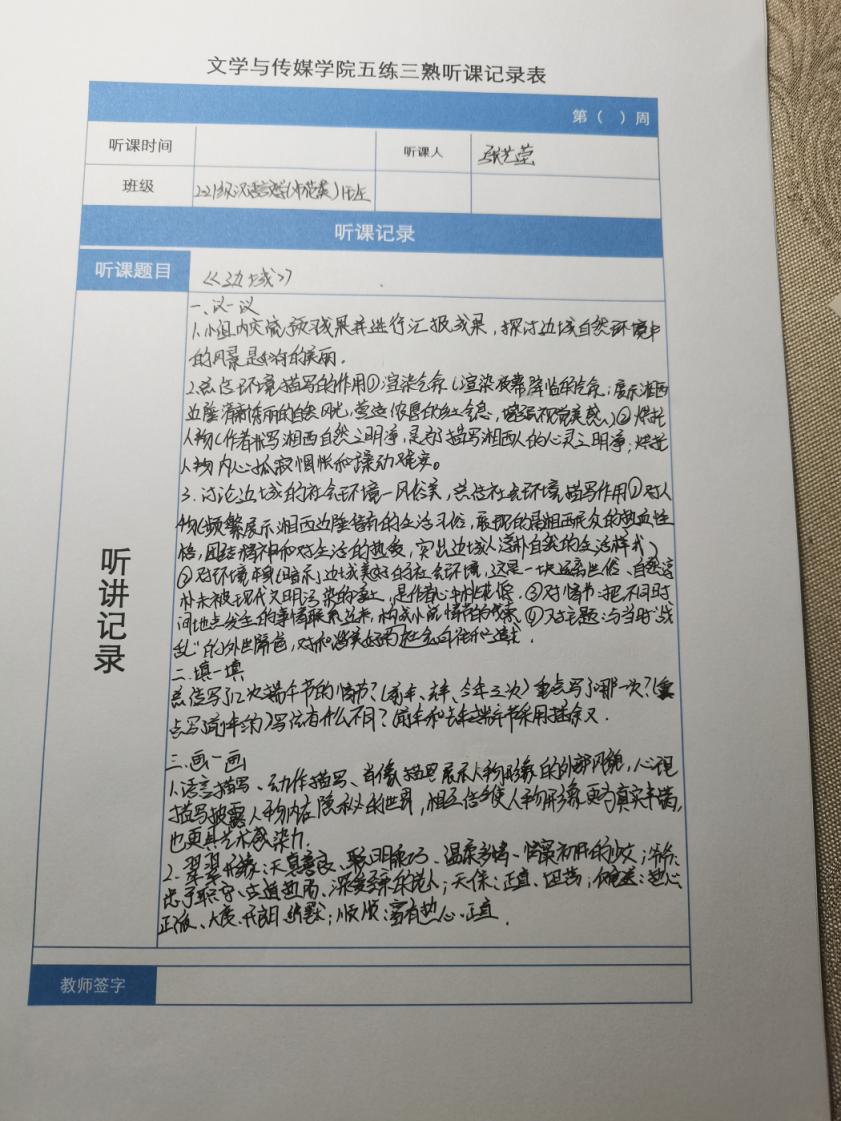 文学与传媒学院五练三熟听课记录表
第（ ）周
听课时间
听课人 张艺莹
班级 221级汉语言文学(师范类)
听课记录
听课题目 《边城》
听讲记录
一、议一议
1.小组内交流预习成果并进行汇报成果，探讨边城自然环境中
的风景是如何的美丽。
2.总结环境描写的作用①渲染气氛(渲染夜幕降临的气氛；展示湘西
边陲清新秀丽的自然风光，营造浓厚的 气息，增强 美感)②烘托
人物(作者书写湘西自然之明净，是为了描写湘西人的心灵之明净；烘托
人物内心孤寂惆怅和躁动 。
3.讨论边城的社会环境—风俗美，总结社会环境描写作用①对人
物(频繁展示湘西边陲特有的生活习俗，展现的是湘西民众的热血性
格，团结精神和对生活的热爱，突出边城人淳朴自然的生活样式)
②对环境本身(暗示)边城美好的社会环境，这是一块远离世俗、自然淳
朴未被现代文明污染的净土，是作者心中 ③对情节：把不同时
间地点发生的事情联系起来，构成小说情节的线索。④对主题：与当时“战
乱”的外世隔绝，对和谐美好的社会向往和追求.
二.填一填
总结写了几次端午节的情节？(前年、去年、今年三次)重点写了哪一次？(重
点写前年的)写法有什么不同？前年和去年端午节采用插叙 .
三.画一画
1.语言描写、动作描写、肖像描写展示人物形象的外部风貌，心理
描写披露人物内在隐秘的世界，相互结合使人物形象更为真实丰满，
也更具艺术感染力.
2.翠翠形象：天真善良、聪明乖巧、温柔多情、情窦初开的少女；爷爷：
忠于职守、 、深爱 的老人；天保：正直、坦荡；傩送：热心、
正派、大度、 ；顺顺：富有热心、正直.
教师签字